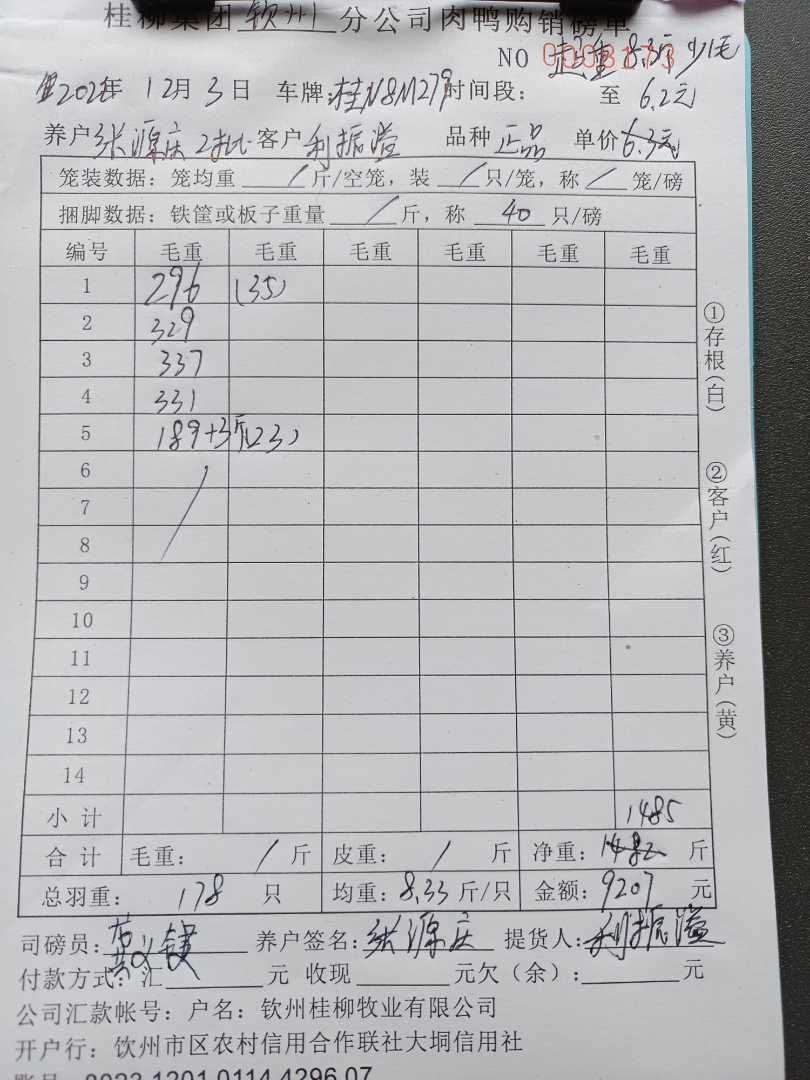 桂柳集团 钦州 分公司肉鸭购销磅单
NO 0008173 超重 8.3斤 少毛
2024年 12月 3日 车牌:桂N8M279 时间段: 至 6.2元
养户 张源庆 2批 客户 利振溢 品种 正品 单价 6.3元
笼装数据:笼均重 / 斤/空笼,装 / 只/笼,称 / 笼/磅
捆脚数据:铁筐或板子重量 / 斤,称 40 只/磅
编号 毛重 毛重 毛重 毛重 毛重 毛重
1 296 (35)
2 329
3 337
4 331
5 189+3斤(23)
6
7
8
9
10
11
12
13
14
小计 1485
合计 毛重: / 斤 皮重: / 斤 净重:1482 斤
总羽重: 178 只 均重:8.33 斤/只 金额:9207 元
司磅员: 养户签名:张源庆 提货人:利振溢
付款方式:汇 元 收现 元欠(余): 元
公司汇款帐号:户名:钦州桂柳牧业有限公司
开户行:钦州市区农村信用合作联社大垌信用社
账号 0023 1201 0114 4296 07
①存根(白)
②客户(红)
③养户(黄)